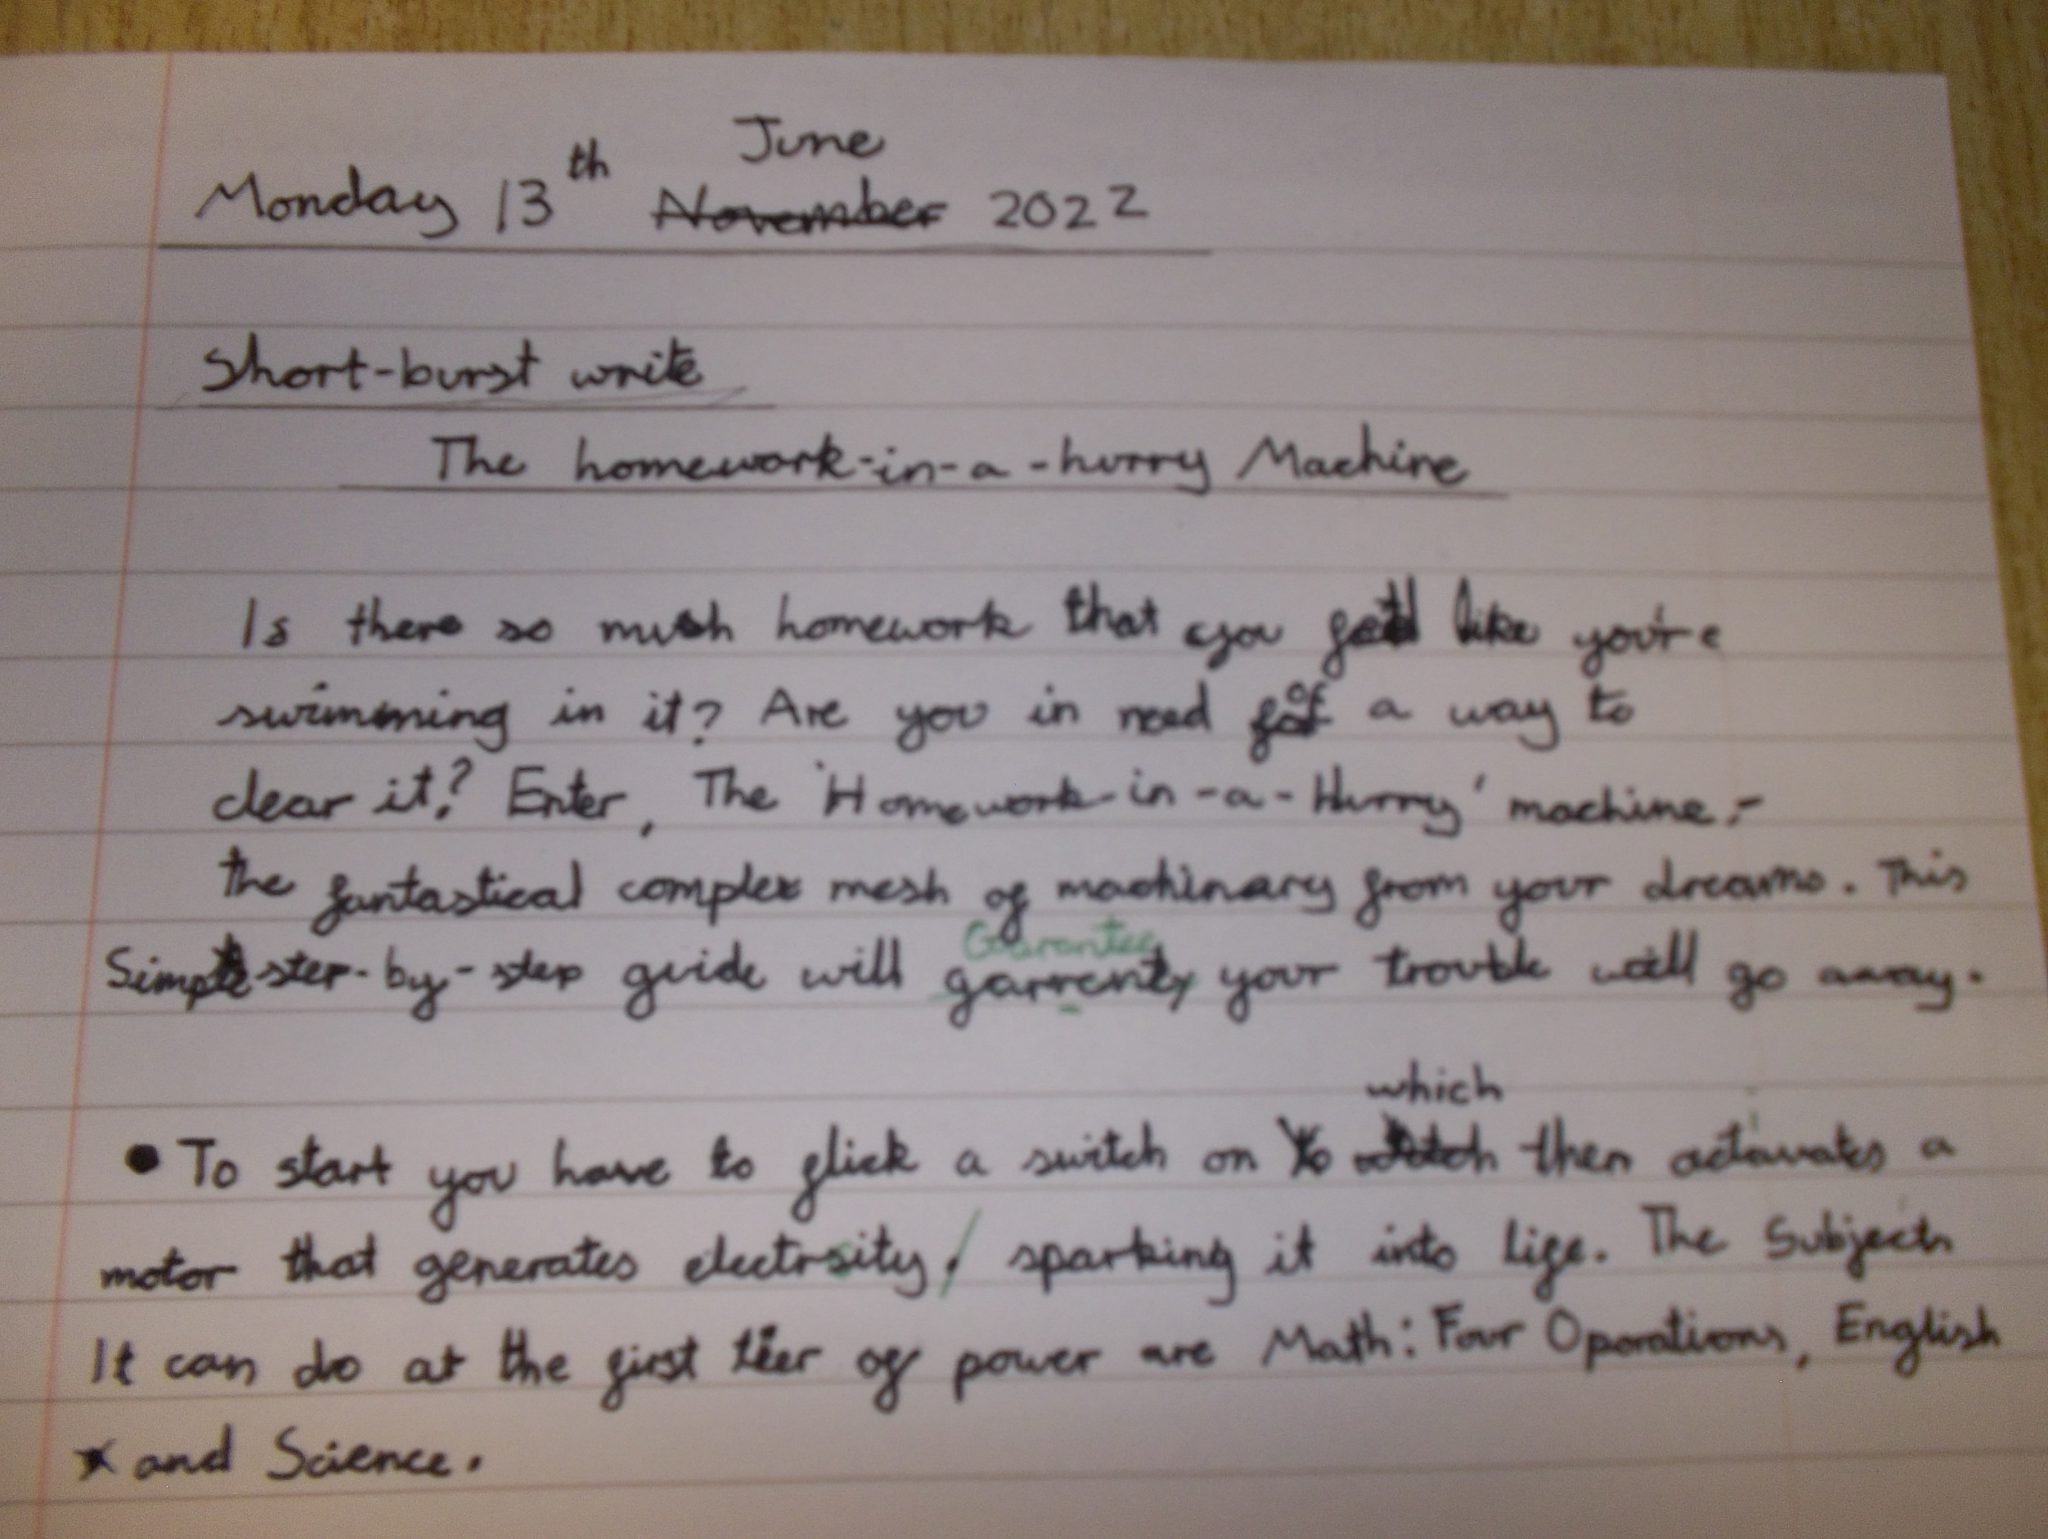 June
Monday 13th November 2022
Short-burst write
The homework-in-a-hurry Machine
Is there so much homework that you feel like you're
swimming in it? Are you in need of a way to
clear it? Enter, The 'Homework-in-a-Hurry' machine:-
the fantastical complex mesh of machinary from your dreams. This
Simple step-by-step guide will garrenty your trouble will go away.
Guarantee
which
• To start you have to flick a switch on to then activates a
motor that generates electrsity, sparking it into life. The Subjects
It can do at the first tier of power are Math: Four Operations, English
and Science.